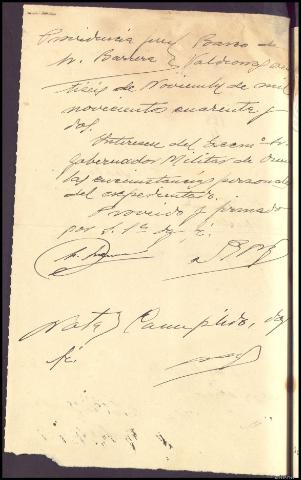 Providencia juez Barco de
Sr. Barrera Valdeorras
tiseis de Noviembre de mil
novecientos cuarenta y
dos.
Interesese del Excmo. Sr.
Gobernador Militar de
las circunstancias personales
del expedientado.
Proveido y firmado
por S. Sª. doy fé.
Nota) Cumplido, doy
fé.